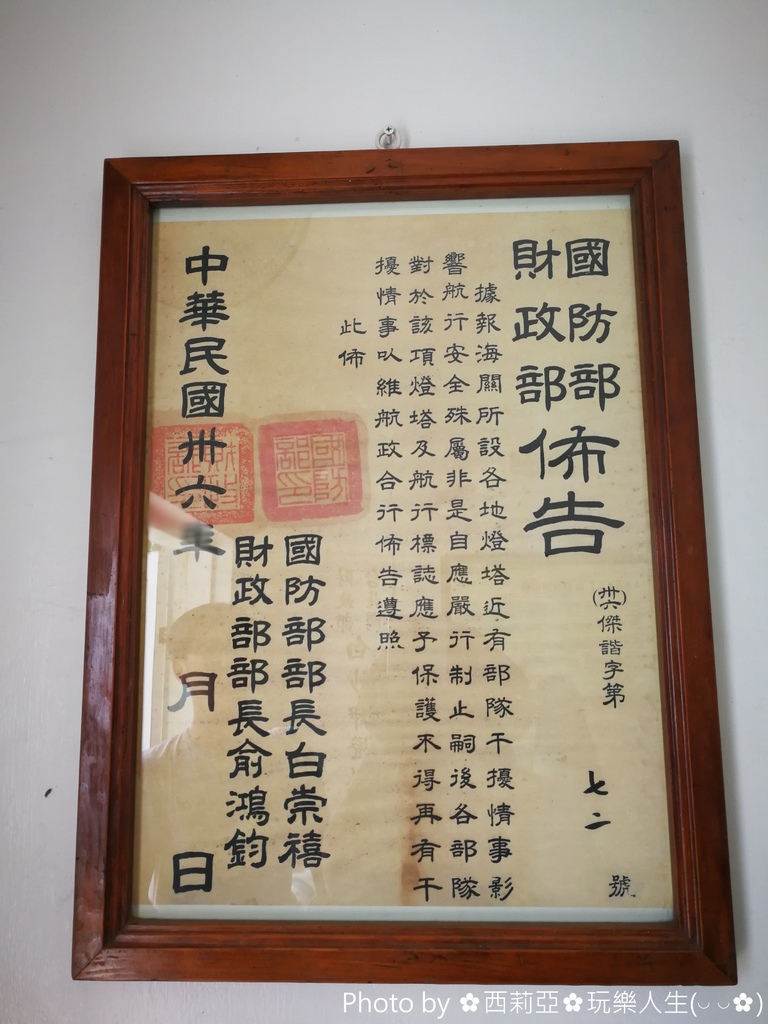 國防部
財政部
佈告
(卅六)傑諧字第 七二 號
據報海關所設各地燈塔近有部隊干擾情事影
響航行安全殊屬非是自應嚴行制止嗣後各部隊
對於該項燈塔及航行標誌應予保護不得再有干
擾情事以維航政合行佈告遵照
此佈
國防部部長白崇禧
財政部部長俞鴻鈞
國防部印
財政部印
中華民國卅六年 月 日
Photo by ✿西莉亞✿玩樂人生(◡ ◡✿)